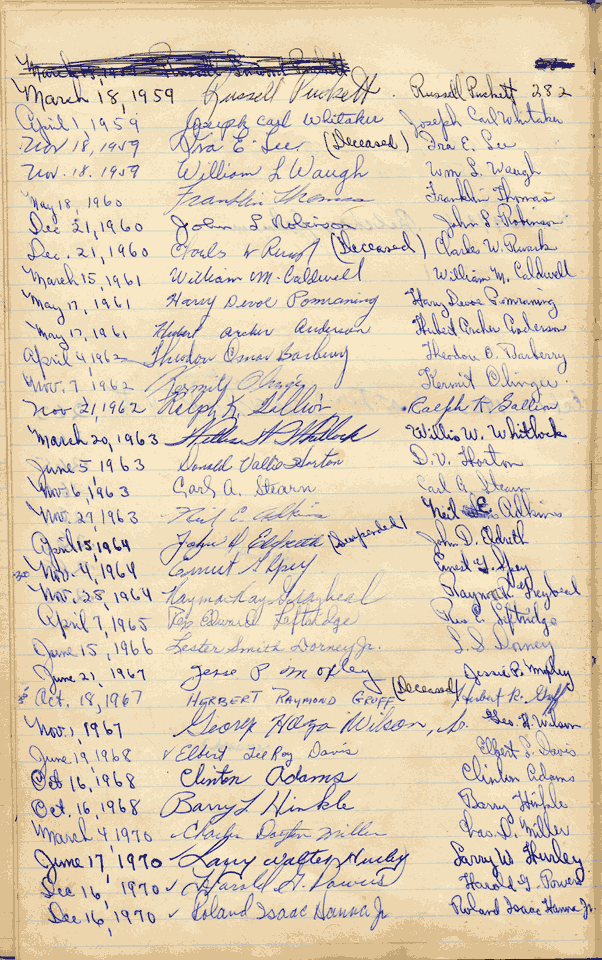 March 18, 1959 Russell Puckett. Russell Puckett 282
April 1, 1959 Joseph Carl Whitaker Joseph Carl Whitaker
Nov 18, 1959 Ira E. Lee (Deceased) Ira E. Lee
Nov. 18. 1959 William L Waugh Wm L. Waugh
May 18, 1960 Franklin Thomas Franklin Thomas
Dec 21, 1960 John L Robinson John L. Robinson
Dec. 21, 1960 (Deceased) Clarke W. Rwark
March 15, 1961 William M. Caldwell William M. Caldwell
May 17, 1961 Harry Devoe Pomraning Harry Devoe Pomraning
May 17, 1961 Hubert Archer Anderson Hubert Archer Anderson
April 4, 1962 Theodore Osmar Barberry Theodore O. Barberry
Nov. 7, 1962 Kermit Olinger Kermit Olinger
Nov 21, 1962 Ralph K. Gallion Ralph K. Gallion
March 20, 1963 Willis W Whitlock Willis W. Whitlock
June 5, 1963 Donald Horton D. V. Horton
Nov 6, 1963 Carl A. Stearn Carl A. Stearn
Nov. 27, 1963 Neil E. Adkins Neil E. Adkins
April 15, 1964 John D. Eldreth (Suspended) John D. Eldreth
Nov. 4, 1964 Ernest G. Spey
Nov. 25, 1964 Raymond Ray Graybeal Raymond R. Greybeal
April 7, 1965 Rex Edward Leftridge Rex E. Leftridge
June 15, 1966 Lester Smith Dorney Jr. L. S. Dorney
June 21, 1967 Jesse P Moxley Jessie P. Moxley
Oct. 18, 1967 Herbert Raymond Gruff (Deceased) Herbert R. Guff
Nov. 1, 1967 George Haga Wilson, Jr. Geo. H. Wilson
June 19, 1968 ✓ Elbert Lee Roy Davis Elbert L. Davis
Oct 16, 1968 Clinton Adams Clinton Adams
Oct. 16, 1968 Barry L Hinkle Barry Hinkle
March 4, 1970 ✓ Charles Dayton Miller Chas. D. Miller
June 17, 1970 Larry Walter Hurley Larry W. Hurley
Dec 16, 1970 ✓ Harold G. Powers Harold G. Powers
Dec 16, 1970 ✓ Roland Isaac Hanna Jr Roland Isaac Hanna Jr.